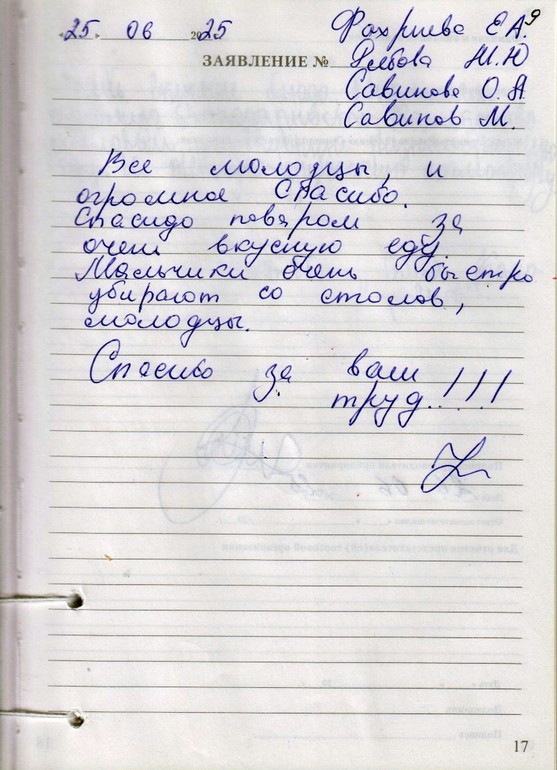 «25» 06 2025
ЗАЯВЛЕНИЕ №
Фахриева Е.А.
Ю.Ю
Савинова О.А.
Савинов М.
Все молодцы, и
огромное спасибо.
Спасидо поваром за
очень вкусную еду.
Мальчики очень быстро
убирают со столов,
молодцы.
Спасибо за ваш
труд..!!!
17